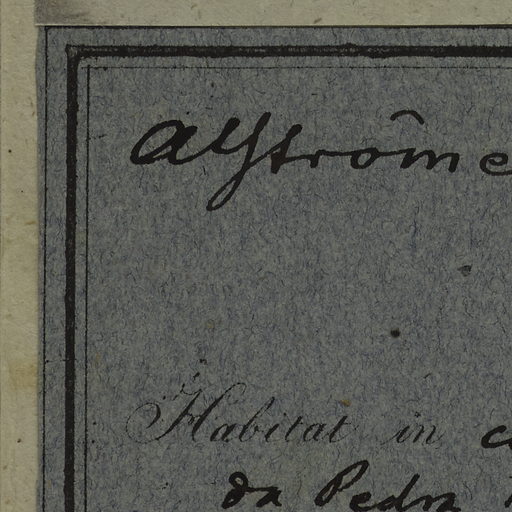 Alströme
Habitat in
da Pedra